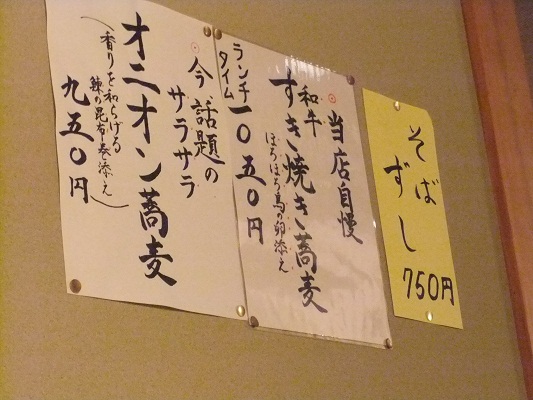 そば
ずし
750円
当店自慢
和牛
すき焼き蕎麦
ほろほろ鳥の卵添え
ランチ
タイム
一〇五〇円
今話題の
サラサラ
オニオン蕎麦
(香りを和らげる
鰊の昆布巻添え)
九五〇円